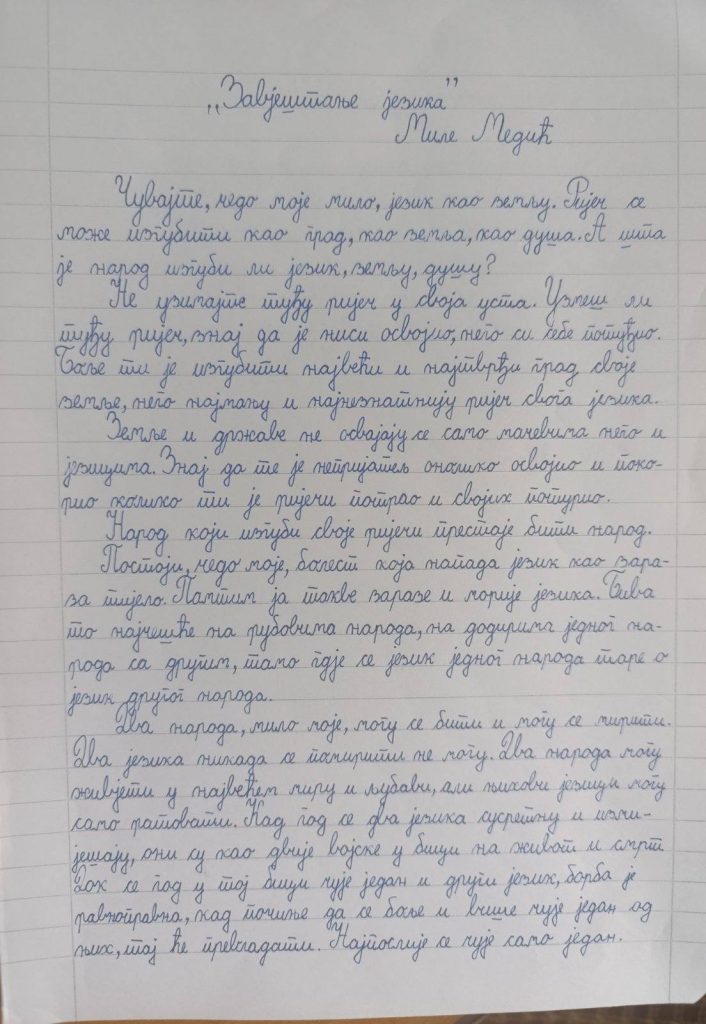 „Завјештање језика”
Миле Медић
Чувајте, чедо моје мило, језик као земљу. Ријеч се
може изгубити као град, као земља, као душа. А шта
је народ изгуби ли језик, земљу, душу?
Не узимајте туђу ријеч у своја уста. Узмеш ли
туђу ријеч, знај да је ниси освојио, него си себе потуђио.
Боље ти је изгубити највећи и најтврђи град своје
земље, него најмању и најнезнатнију ријеч свога језика.
Земље и државе не освајају се само мачевима него и
језицима. Знај да те је непријатељ онолико освојио и поко-
рио колико ти је ријечи потрао и својих потурио.
Народ који изгуби своје ријечи престаје бити народ.
Постоји, чедо моје, болест која напада језик као зара-
за тијело. Памтим ја такве заразе и морије језика. Бива
то најчешће на рубовима народа, на додирима једног на-
рода са другим, тамо гдје се језик једног народа таре о
језик другог народа.
Два народа, мило моје, могу се бити и могу се мирити.
Два језика никада се помирити не могу. Два народа могу
живјети у највећем миру и љубави, али њихови језици могу
само ратовати. Кад год се два језика сусретну и изми-
јешају, они су као двије војске у бици на живот и смрт
Док се год у тој бици чује један и други језик, борба је
равноправна, кад почиње да се боље и више чује један од
њих, тај ће превладати. Најпослије се чује само један.